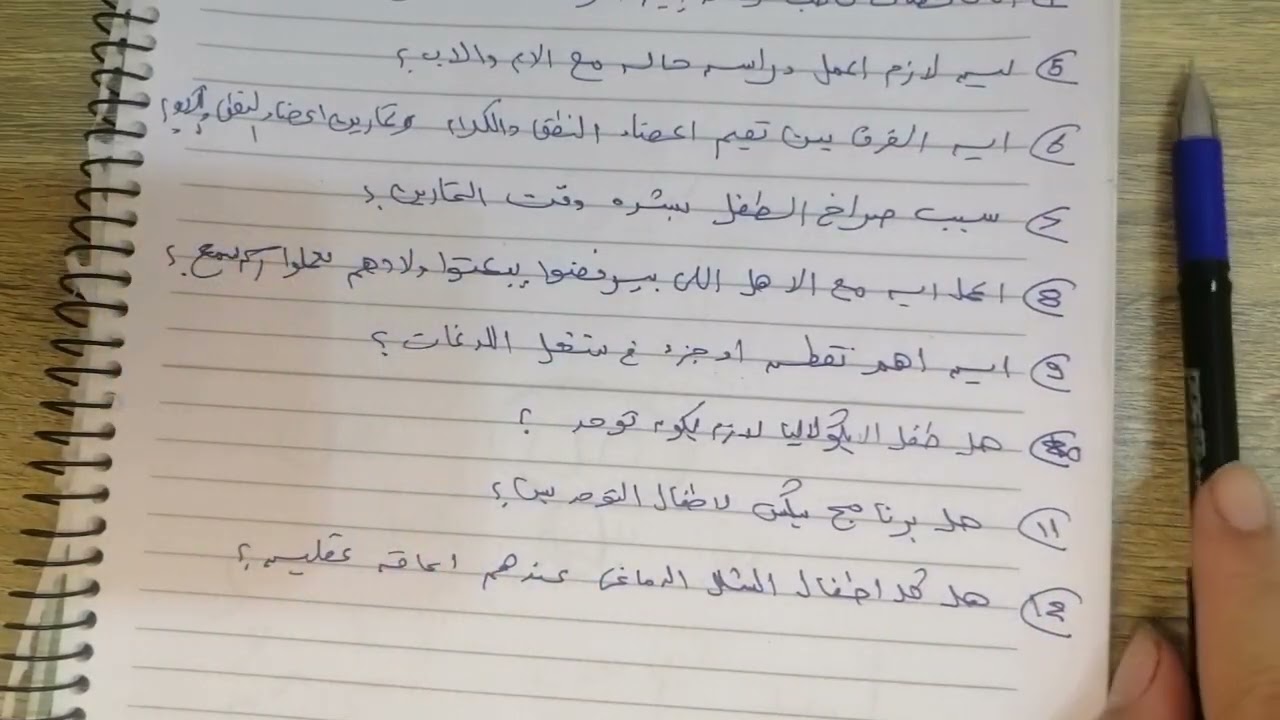 5 ليه لازم اعمل دراسه حاله مع الام والاب؟
6 ايه الفرق بين تقيم اعضاء النطق والكلام وتمارين اعضاء النطق
7 سبب صراخ الطفل بشده وقت التمارين؟
8 اعمل ايه مع الاهل اللى بيرفضوا يبعتوا ولادهم يعملوا رسم سمع؟
9 ايه اهم نقطه او جزء فى شغل اللدغات؟
10 هل طفل الايكولاليا لازم يكون توحد ؟
11 هل برنامج بيكس لاطفال التوحد بس؟
12 هل كل اطفال الشلل الدماغى عندهم اعاقه عقليه؟